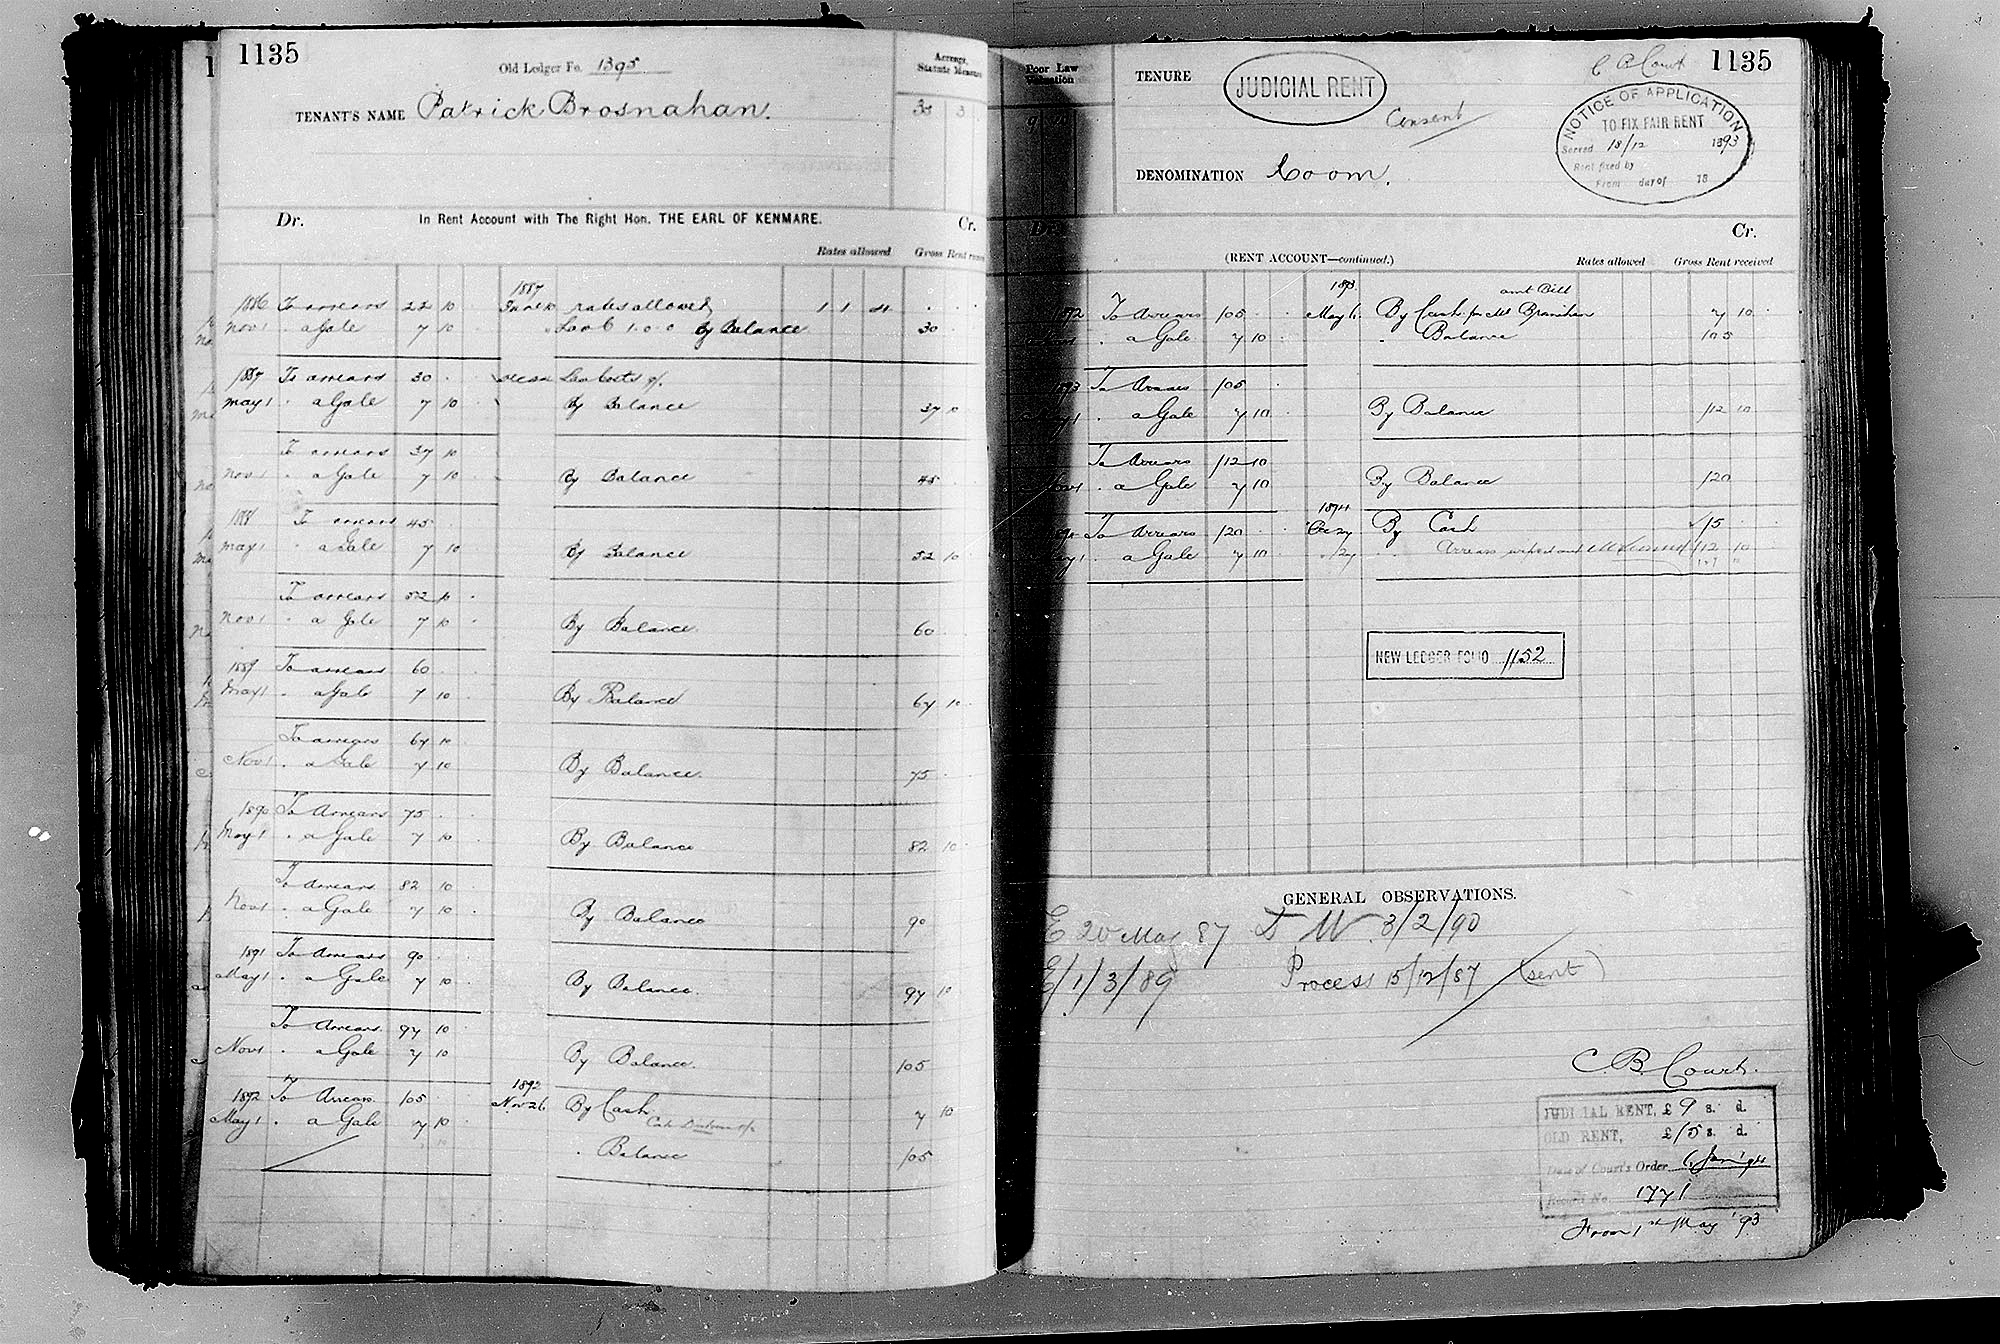 1135
Old Ledger Fo. 1395
Acreage, Statute Measure
TENANT'S NAME Patrick Brosnahan.
38 3
Dr. In Rent Account with The Right Hon. THE EARL OF KENMARE. Cr.
Rates allowed Gross Rent
1887
1886 To arrears 22 10 rates allowed 1 1
Nov 1 " a Gale 7 10 1.0.0 By Balance 30
1887 To arrears 30
May 1 " a Gale 7 10 By Balance 37 10
To arrears 37 10
Nov 1 " a Gale 7 10 By Balance 45
1888 To arrears 45
May 1 " a Gale 7 10 By Balance 52 10
To arrears 52 10
Nov 1 " a Gale 7 10 By Balance 60
1889 To arrears 60
May 1 " a Gale 7 10 By Balance 67 10
To arrears 67 10
Nov 1 " a Gale 7 10 By Balance. 75
1890 To Arrears 75
May 1 " a Gale 7 10 By Balance 82 10
To Arrears 82 10
Nov 1 " a Gale 7 10 By Balance 90
1891 To Arrears 90
May 1 " a Gale 7 10 By Balance. 97 10
To Arrears 97 10
Nov 1 " a Gale 7 10 By Balance. 105
1892 To Arrears 105 1892 Nov 26 By Cash 7 10
May 1 " a Gale 7 10
" Balance 105
Poor Law Valuation
TENURE JUDICIAL RENT C B Court 1135
Consent
NOTICE OF APPLICATION
TO FIX FAIR RENT
Served 18/12 1893
Rent fixed by
From day of 18
DENOMINATION Coom.
Dr. Cr.
(RENT ACCOUNT—continued.) Rates allowed Gross Rent received
1893 amt Bill
To Arrears 105 May 6 By Cash for Mr 7 10
" a Gale 7 10 " Balance 105
To Arrears 105
" a Gale 7 10 By Balance 112 10
To Arrears 112 10
" a Gale 7 10 By Balance 120
1894
To Arrears 120 By Cash 15
" a Gale 7 10 Arrears wiped out 112 10
NEW LEDGER FOLIO 1152
GENERAL OBSERVATIONS.
E 20 May 87 3/2/90
E/1/3/89 Process 15/12/87 (sent)
C. B. Court.
JUDICIAL RENT, £ 9 s. d.
OLD RENT, £ 15 s. d.
Date of Court's Order 6 Jan '94
Record No. 1771
From 1st May '93